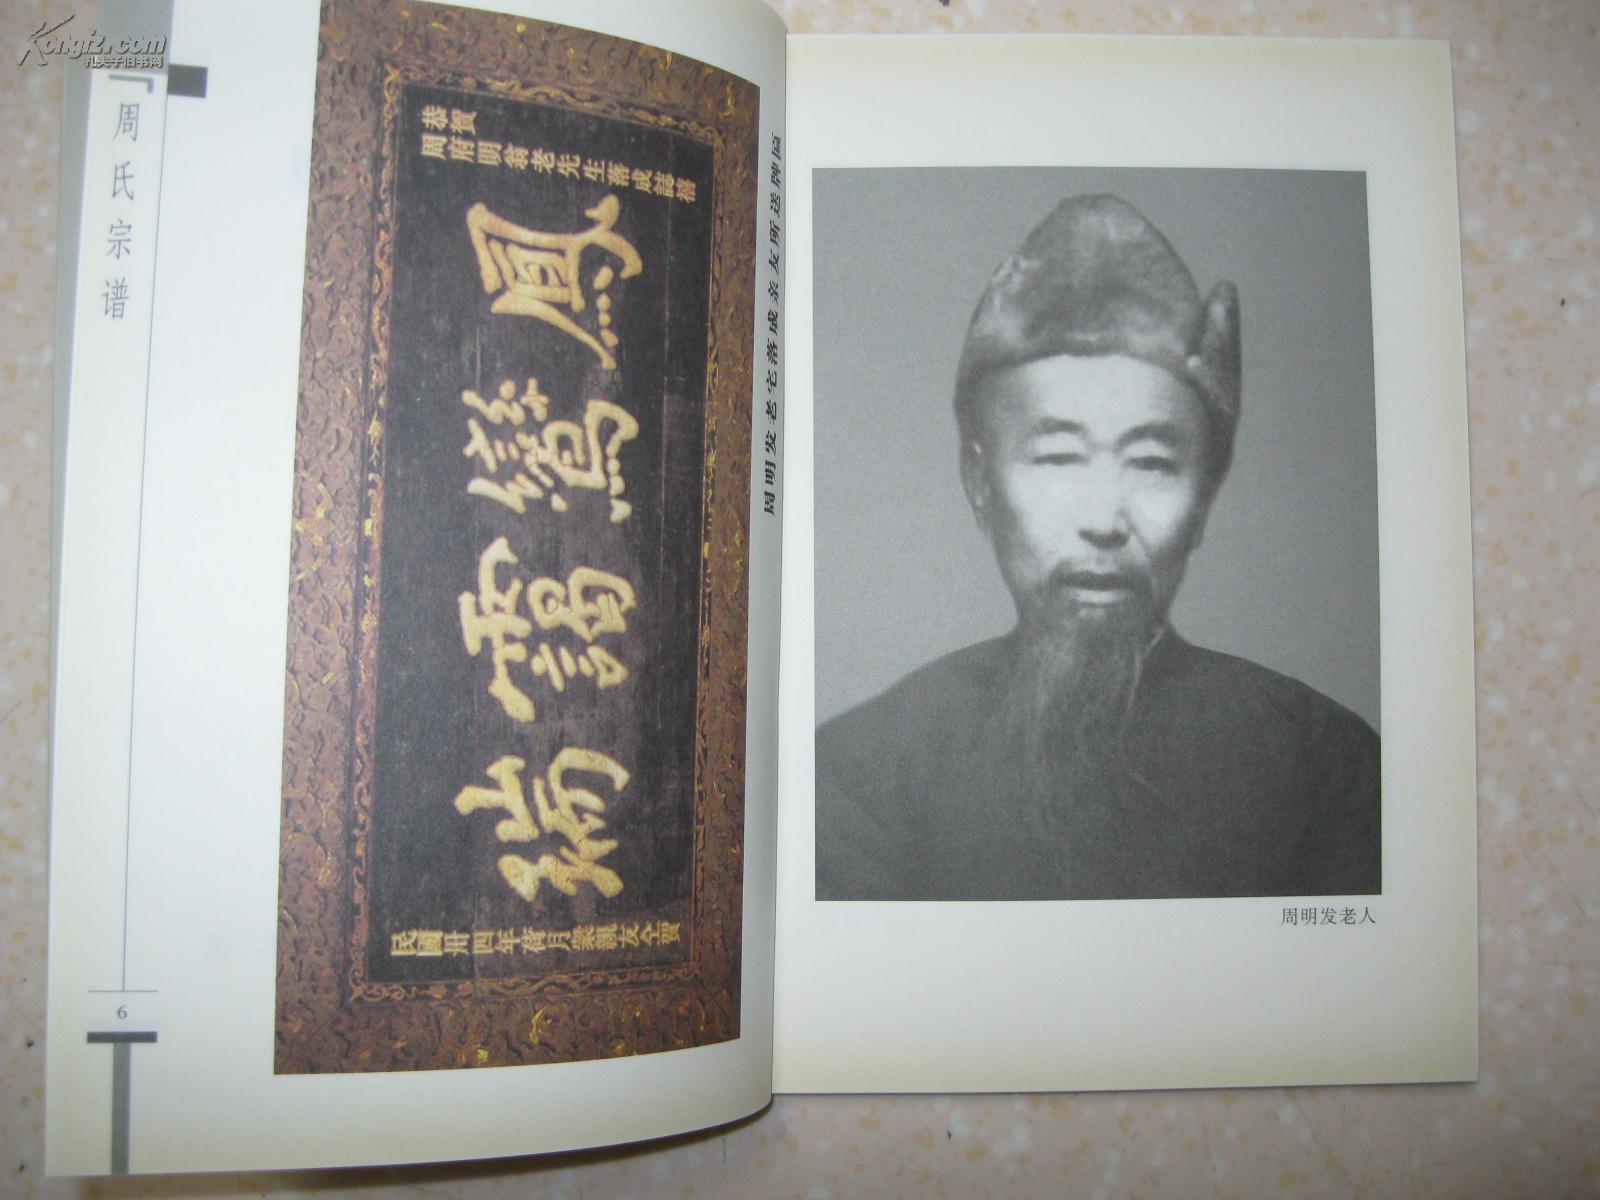 Kongfz.com
孔夫子旧书网
周氏宗谱
恭賀
周府明翁老先生落成誌禧
鳳鸞靄瑞
民國卅四年荷月眾親友仝賀
周明发老宅落成亲友所送牌匾
6
周明发老人